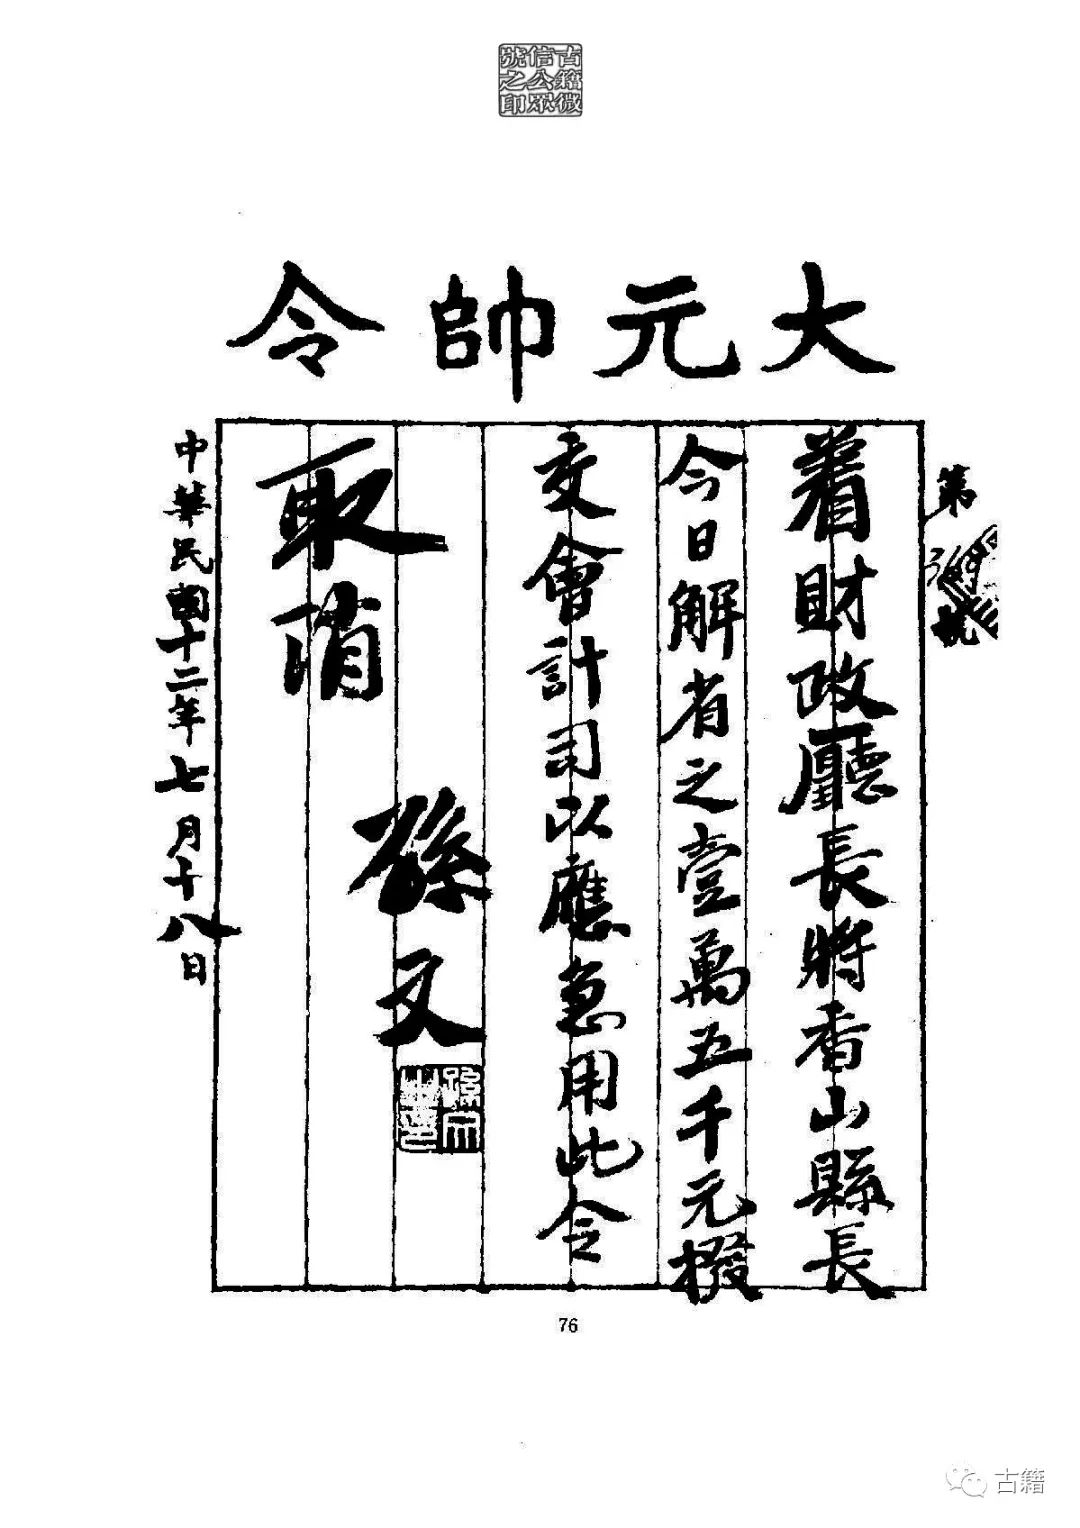 古籍微
信公眾
號之印
大元帥令
第 號
着財政廳長將香山縣長
今日解省之壹萬五千元撥
交會計司以應急用此令
孫文
孫文之印
取消
中華民國十二年七月十八日
76
古籍